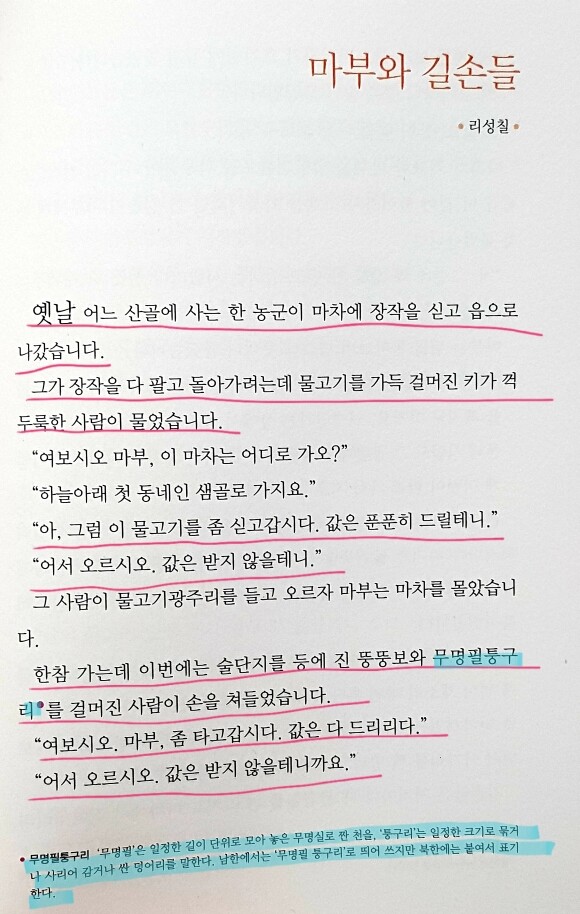 마부와 길손들
• 리성칠 •
옛날 어느 산골에 사는 한 농군이 마차에 장작을 싣고 읍으로
나갔습니다.
그가 장작을 다 팔고 돌아가려는데 물고기를 가득 걸머진 키가 꺽
두룩한 사람이 물었습니다.
“여보시오 마부, 이 마차는 어디로 가오?”
“하늘아래 첫 동네인 샘골로 가지요.”
“아, 그럼 이 물고기를 좀 싣고갑시다. 값은 푼푼히 드릴테니.”
“어서 오르시오. 값은 받지 않을테니.”
그 사람이 물고기광주리를 들고 오르자 마부는 마차를 몰았습니
다.
한참 가는데 이번에는 술단지를 등에 진 뚱뚱보와 무명필퉁구
리•를 걸머진 사람이 손을 쳐들었습니다.
“여보시오. 마부, 좀 타고갑시다. 값은 다 드리리다.”
“어서 오르시오. 값은 받지 않을테니까요.”
• 무명필퉁구리 ‘무명필’은 일정한 길이 단위로 모아 놓은 무명실로 짠 천을, ‘퉁구리’는 일정한 크기로 묶거
나 사리어 감거나 싼 덩어리를 말한다. 남한에서는 ‘무명필 퉁구리’로 띄어 쓰지만 북한에는 붙여서 표기
한다.